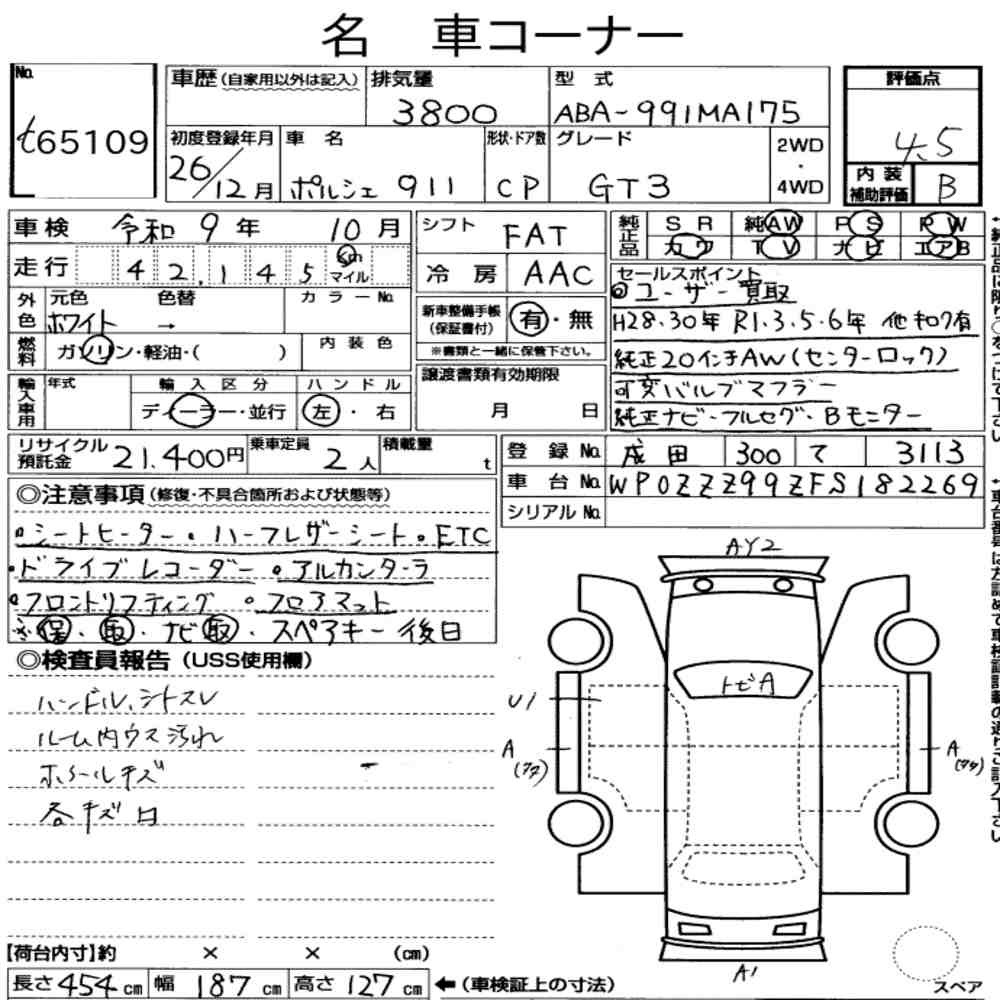 名 車コーナー
No.
t65109
車歴(自家用以外は記入)
排気量
3800
型 式
ABA-991MA175
初度登録年月
26/12月
車 名
ポルシェ 911
形状・ドア数
CP
グレード
GT3
2WD
・
4WD
評価点
4.5
内装
補助評価
B
車検 令和 9年 10月
走行 42,145 Km
マイル
外色
元色 色替 カラーNo.
ホワイト →
燃料
ガソリン・軽油・( )
内 装 色
輸入車用
年式
輸 入 区 分
ディーラー・並行
ハ ン ド ル
左・右
シフト FAT
冷 房 AAC
新車整備手帳
(保証書付)
有・無
※書類と一緒に保管下さい。
譲渡書類有効期限
月 日
純正品
SR 純AW PS PW
カワ TV ナビ エアB
セールスポイント
◎ユーザー買取
H28.30年 R1.3.5.6年 他キロク有
純正20インチAW(センターロック)
可変バルブマフラー
純正ナビ・フルセグ・Bモニター
リサイクル
預託金
21.400円
乗車定員
2人
積載量
t
登 録 No. 成田 300 て 3113
車 台 No. WP0ZZZ99ZFS182269
シリアル No.
◎注意事項(修復・不具合箇所および状態等)
・シートヒーター・ハーフレザーシート・ETC
・ドライブレコーダー ・アルカンターラ
・フロントリフティング ・フロアマット
※保・取・ナビ取・スペアキー後日
◎検査員報告(USS使用欄)
ハンドル、シトスレ
ルーム内ウス汚れ
ホイールキズ
各キズ 日
AY2
トビA
U1
A
(ワタ)
A
(ワタ)
A1
スペア
【荷台内寸】約 × × (cm)
長さ454cm 幅187cm 高さ127cm ←(車検証上の寸法)